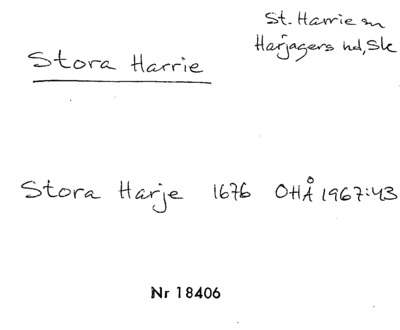 St. Harrie sn
Harjagers hd, Sk
Stora Harrie
Stora Harje 1676 OHÅ 1967:43
Nr 18406